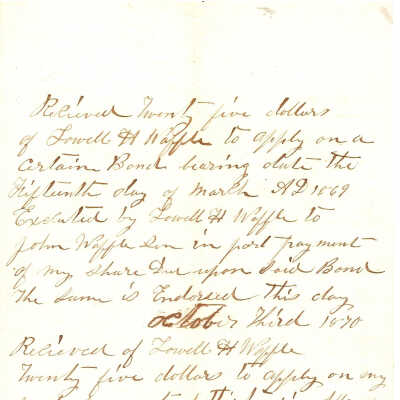 Relieved Twenty five dollars
of Lowell H Wapple to apply on a
Certain Bond bearing date the
Fifteenth day of March AD 1869
Executed by Lowell H Wapple to
John Wapple Sen in part payment
of my share Due upon Said Bond
The same is Endorsed this day
October Third 1870
Relieved of Lowell H Wapple
Twenty five dollars to apply on my